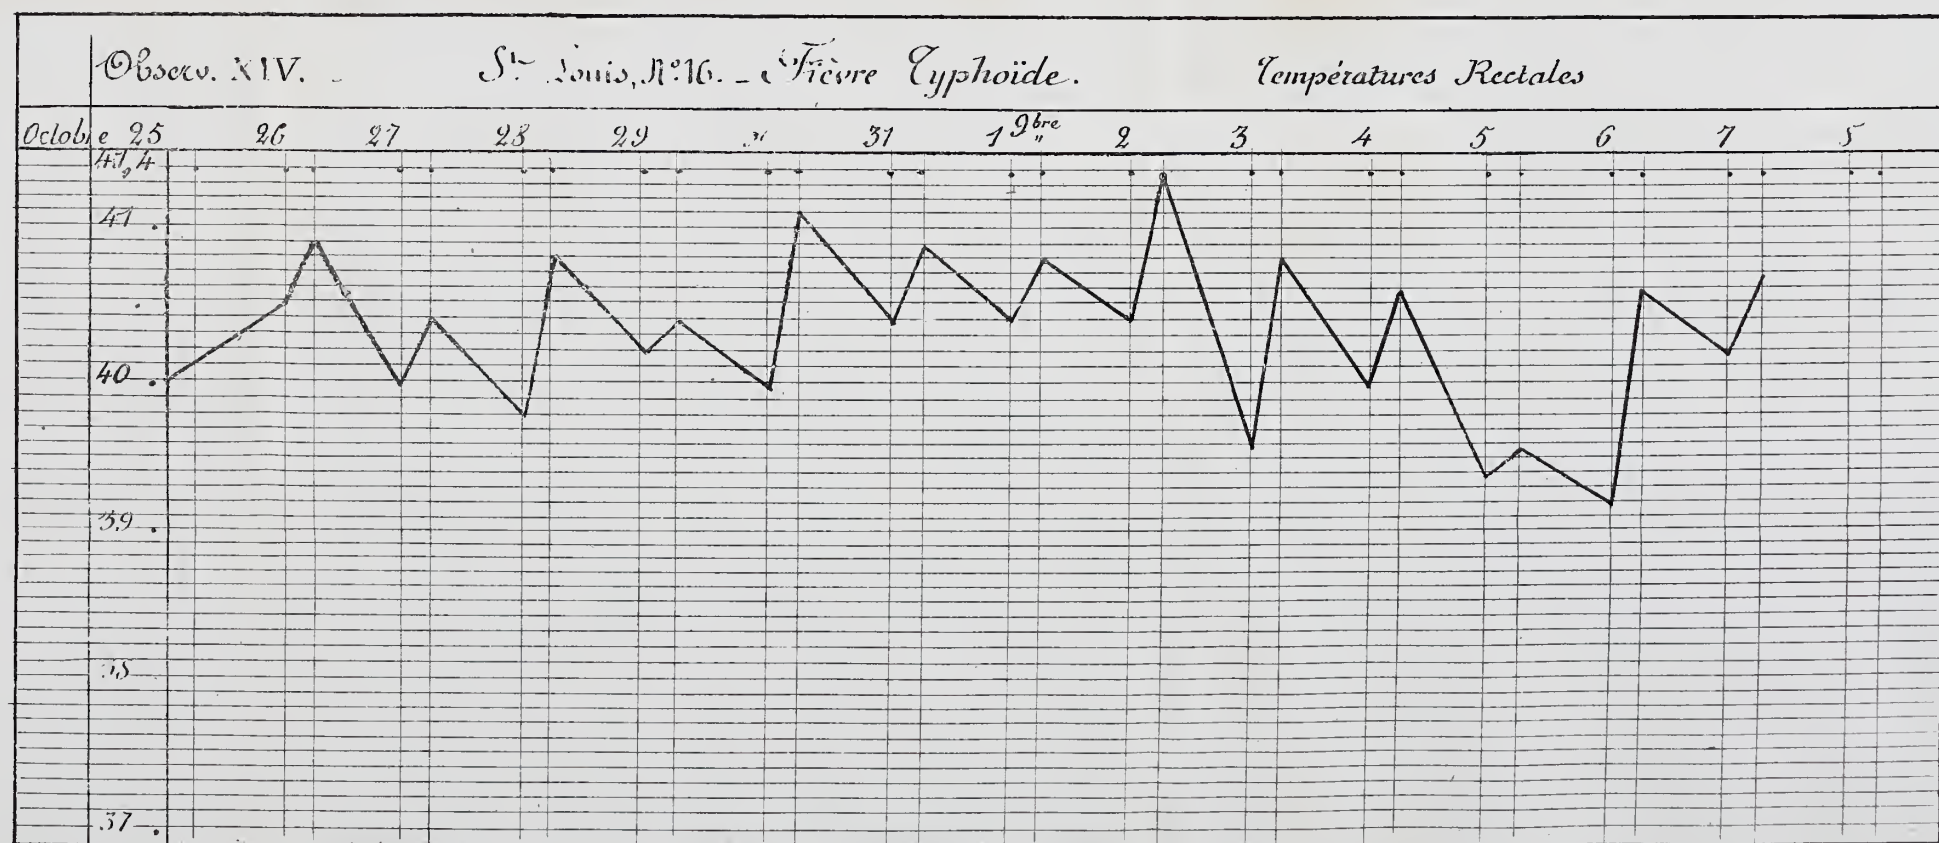 Observ. XIV. - St Louis, No 16. - Fièvre Typhoïde. Températures Rectales
Octobre 25 26 27 28 29 31 1 9bre " 2 3 4 5 6 7
41,4
41
40
39
37